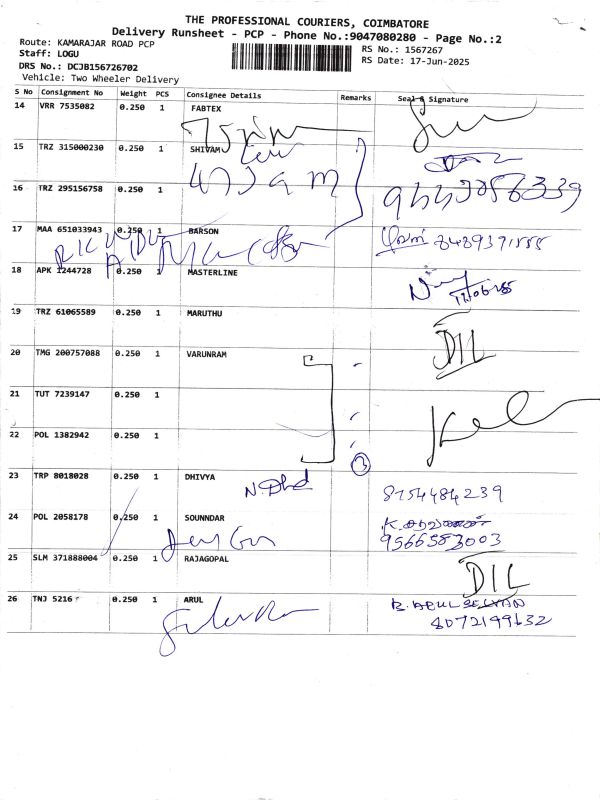 THE PROFESSIONAL COURIERS, COIMBATORE
Delivery Runsheet - PCP - Phone No.:9047080280 - Page No.:2
Route: KAMARAJAR ROAD PCP
Staff: LOGU
DRS No.: DCJB156726702
Vehicle: Two Wheeler Delivery
RS No.: 1567267
RS Date: 17-Jun-2025
S No Consignment No Weight PCS Consignee Details Remarks Seal & Signature
14 VRR 7535082 0.250 1 FABTEX
15 TRZ 315000230 0.250 1 SHIVAM
16 TRZ 295156758 0.250 1
17 MAA 651033943 0.250 1 BARSON
8489371555
18 APK 1244728 0.250 1 MASTERLINE
19 TRZ 61065589 0.250 1 MARUTHU
DIL
20 TMG 200757088 0.250 1 VARUNRAM
21 TUT 7239147 0.250 1
22 POL 1382942 0.250 1
3
23 TRP 8018028 0.250 1 DHIVYA
8754484239
24 POL 2058178 0.250 1 SOUNNDAR
9566583003
25 SLM 371888004 0.250 1 RAJAGOPAL
DIL
26 TNJ 5216 0.250 1 ARUL
R. ARUL SELVAN
8072199632